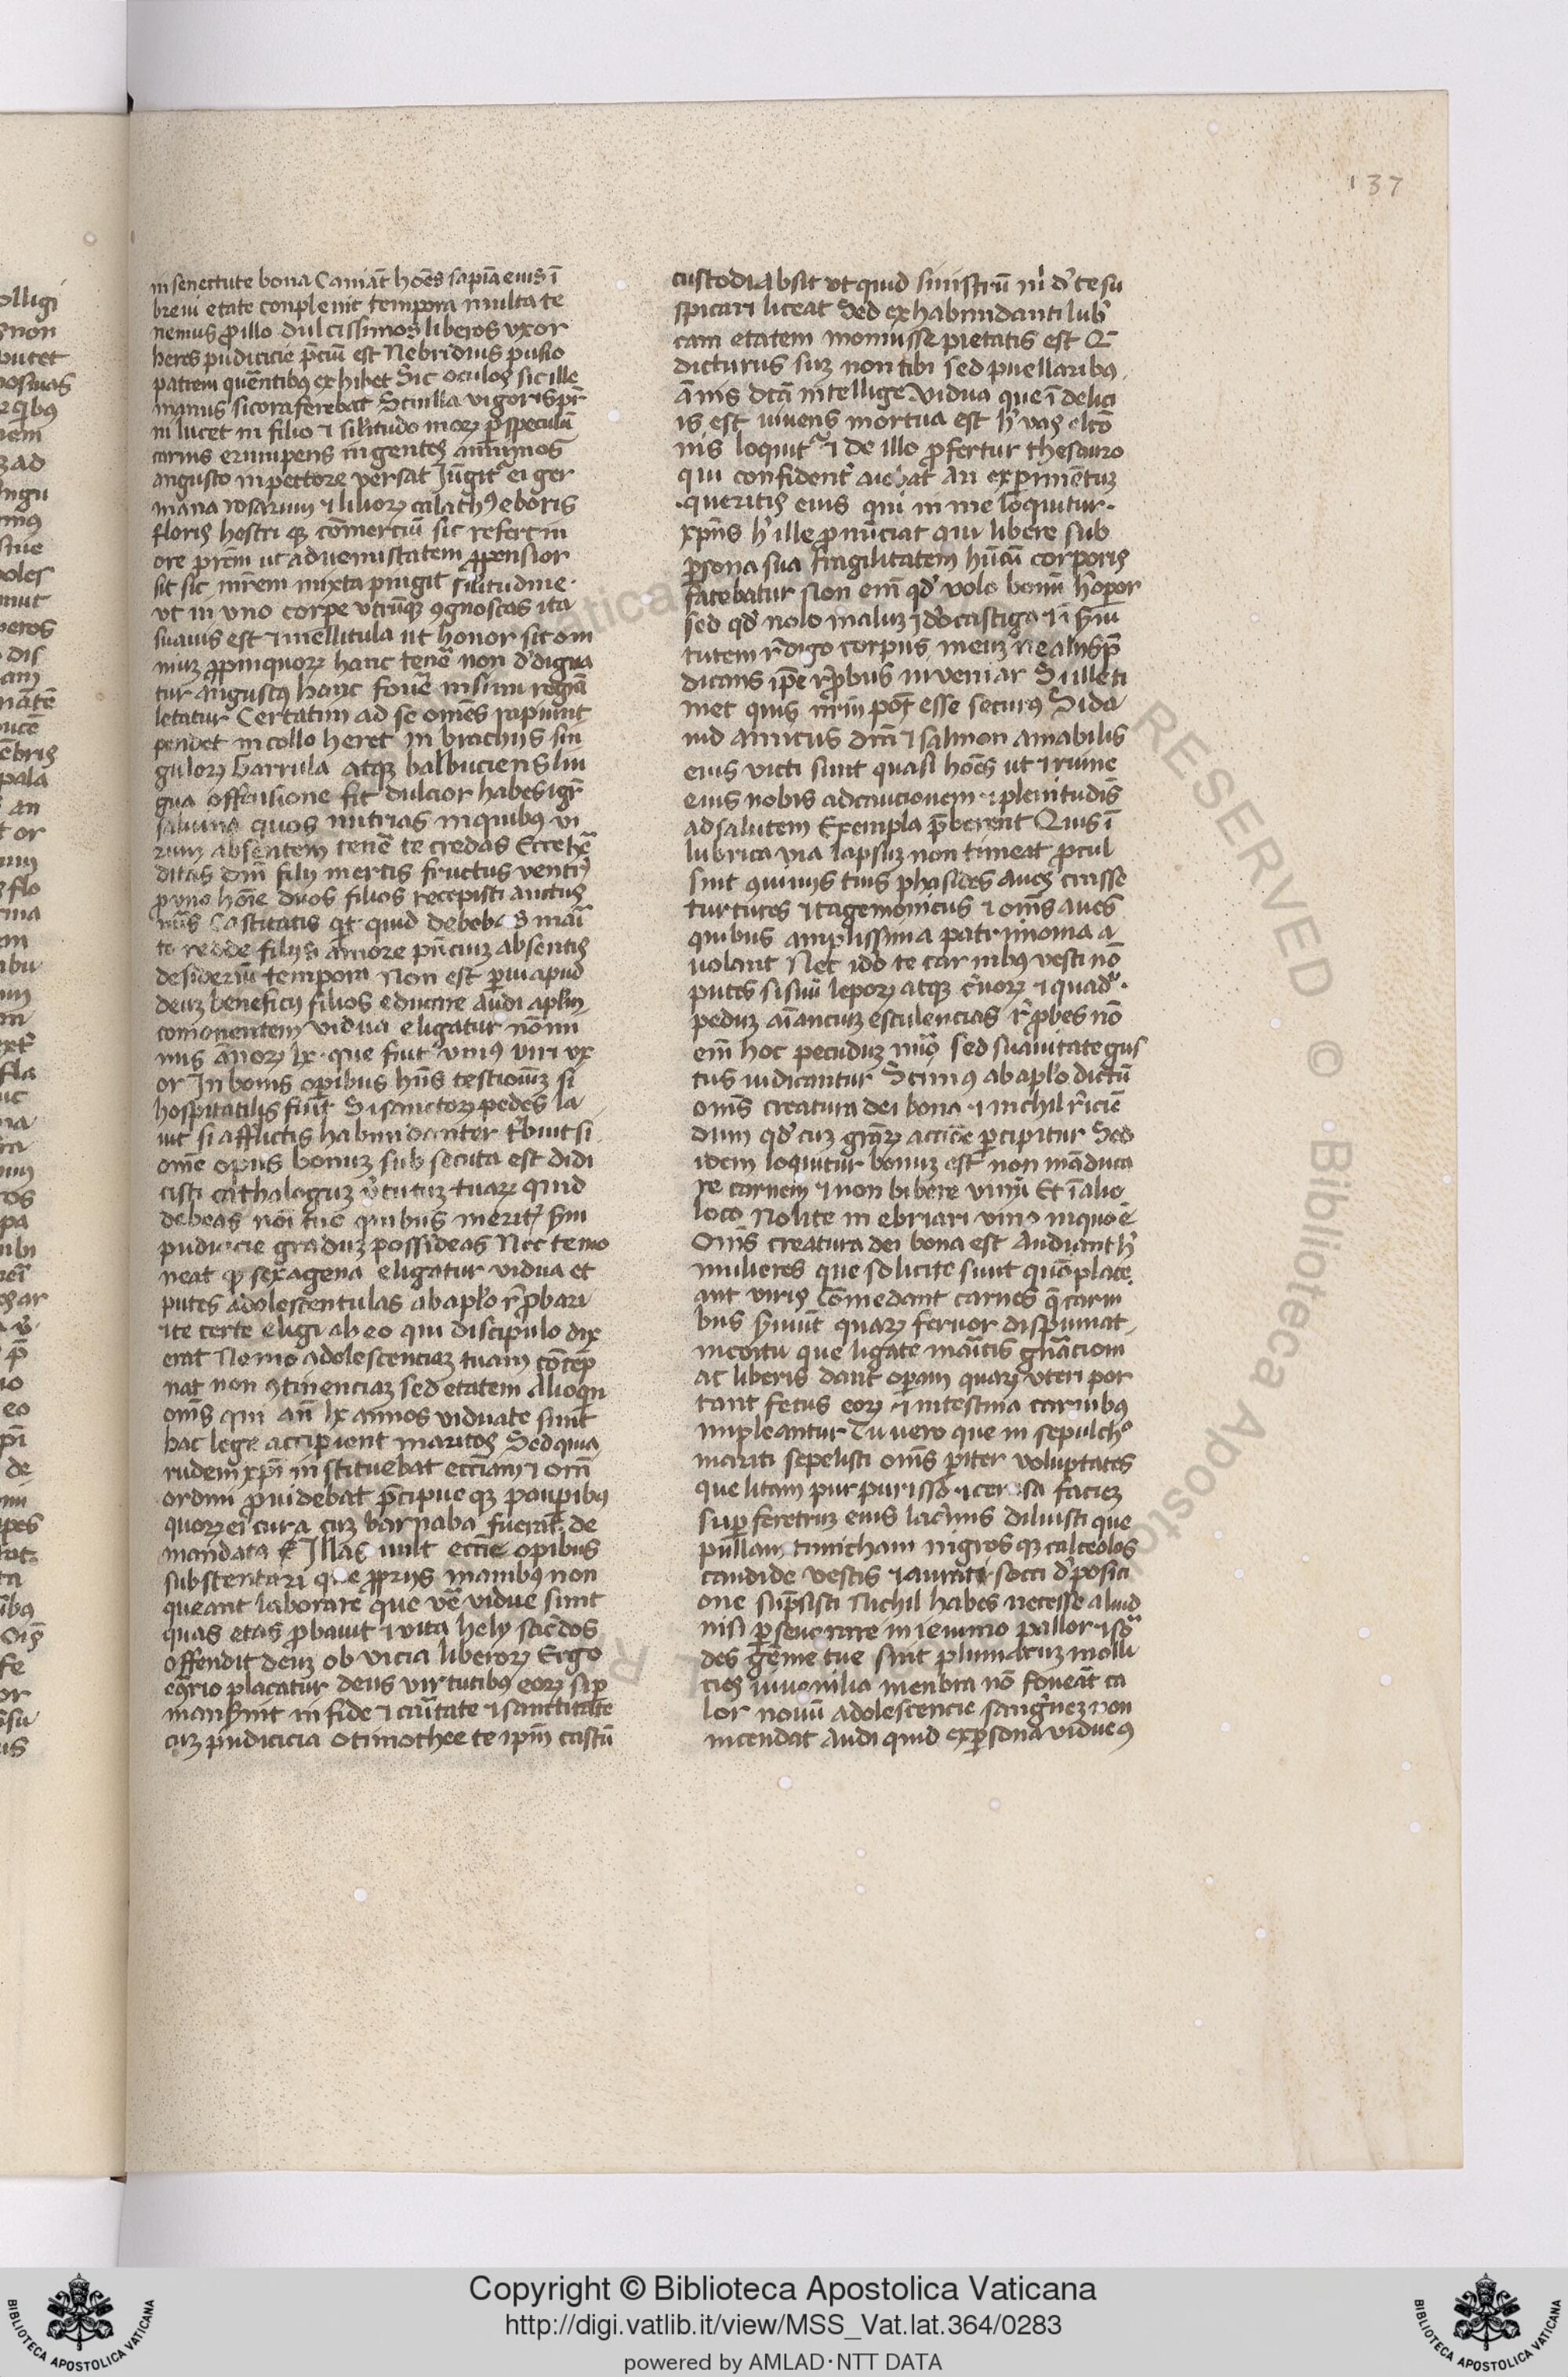 137
in senectute bona Caniāt hoēs sapīa eius ī
breui etate conplenit tempora multa te
nemus ꝓ illo dulcissimos liberos vxor
heres pudicicie p̄ciū est Nebridius pusio
patrem querentibꝰ exhibet Sic oculos sic ille
manus sic ora ferebat Scinlla vigoris pr̄
ni lucet in filio ⁊ silitudo moꝝ ꝑ speculū
carnis erumpens ingentes animos
angusto in pectore versat Jūgitᷓ ei ger
mana rosarum ⁊ lilioꝝ calathꝰ eboris
floris hostri qꝫ cōmerciū sic refert in
ore prēm ut ad venustatem ꝓpensior
sit sic mr̄em mixta pingit silitudine·
vt in vno corpe vtrūqꝫ ꝯgnoscas ita
suauis est ⁊ mellitula ut honor sit om
niuꝫ ꝓpinquoꝝ hanc tenē non d'digna
tur augustꝰ hanc fouē in sinu regīa
letatur Certatim ad se omēs rapiunt
pendet in collo heret in brachijs sin
guloꝝ Garrula atqꝫ balbuciens lin
gua offensione fit dulcior habes igr̄
saluina quos nutrias in quibꝰ vi
rum absentem tenē te credas Ecce he᷑
ditas dn̄i filij merces fructus ventrꝭ
ꝓ vno hoīe duos filios recepisti auctus
nūs Castitatis qͥt quid debebas māi᷑
to redde filijs amore pn̄cium absentis
desideriū tempora Non est ꝑui apud
deuꝫ beneficij filios educare Audi apl̄m
comonentem vidua eligatur nō mi
nus ānoꝝ lx· que fiutᷓ vniꝰ viri vx
or In bonis opibus hn̄s testioniꝫ si
hospitatilis fiūt Si sanctoꝝ pedes la
uit si afflictis habundanter t̾buit si
om̄e opus bonuꝫ sub secuta est didi
cisti cathaloguꝫ v̾tutuꝫ tuaꝝ quid
debeas noi tuo quibus meritꝭ scdm
pudicicie graduꝫ possideas Nec te mo
neat ꝙ sexagena eligatur vidua et
putes adolescentulas ab apl̄o r̾probari
ite certe eligi ab eo qui discipulo dix
erat Nemo adolescenciaꝫ tuam cōtep̄
nat non ꝯtinenciaꝫ sed etatem Alioqn
om̄s qui an̄ lx annos viduate sunt
hac lege accipient maritos Sed quia
rudem xp̄i instituebat ecc̄iam ⁊ om̄i
ordini ꝓuidebat p̄cipue qꝫ pauꝑibꝰ
quoꝝ ei cura cuꝫ barnaba fuerat de
mandata Illas uult ecc̄ie opibus
substentari que ꝓprijs manibꝰ non
queant laborare que ve᷑ vidue sunt
quas etas ꝓbauit ⁊ vita hely sac̾dos
offendit deuꝫ ob vicia liberoꝝ Ergo
eqrio placatur deus virtutibꝰ eoꝝ si ꝑ
manserint in fide ⁊ caritate ⁊ sanctitate
cuꝫ pudicicia o timothee te ip̄m castū
custodi Absit vt quid sinistrū m̾ d' te su
spicari liceat Sed ex habundanti lub̾
cam etatem monuisse pietatis est Q̄
dicturus suꝫ non tibi sed puellaribꝰ
ānis dictā intellige Vidua que ī delici
is est viuens mortua est h̾ vas elc̄o
nis loquitᷓ ⁊ de illo ꝓfertur thesauro
qui confident̾ aiebat An exꝑimētuꝫ
queritis eius qui in me loquitur·
xp̄us h̾ ille ꝓnūciat qui libere sub
ꝑsona sua fragilitatem hūāi corporis
fatebatur Non eni qd̾ volo bonū h̾ oꝑor
sed qd̾ nolo maluꝫ ⁊ id̾o castigo ⁊ ī s̾ui
tutem r̾digo corpus meuꝫ ne alijs p̄
dicans ip̄e r̾probus inueniar Si ille ti
met quis nr̄m pot̄ esse securꝰ Si da
uid amicus dn̄i ⁊ salmon amabilis
eius victi sunt quasi hoēs ut ⁊ ruine
eius nobis ad caucionem ⁊ plenitudīs
ad salutem Exempla p̄berent Quis ī
lubrica via lapsuꝫ non timeat ꝓcul
sint ꝯuiuijs tuis phasides aues crasse
turtures ⁊ tagemonicus ⁊ om̄s aues
quibus amplissima patrimonia a
uolant Nec id̾o te carnibꝰ vesci nō
putes si sinū lepoꝝ atqꝫ c̾uoꝝ ⁊ quadͬ·
peduꝫ aīancuꝫ esculencias r̾probes nō
em̄ hoc pecuduꝫ nu͞o sed suauitate gus
tus iudicantur Scimꝰ ab apl̄o dictū
om̄s creatura dei bona ⁊ nichil r̾iciē
dum qd̾ cuꝫ gr̄aꝝ acciōe ꝑcipitur Sed
idem loquitur bonuꝫ est non māduca
re carnem ⁊ non bibere vinū Et ī alio
loco Nolite inebriari vino in quo ē
Om̄s creatura dei bona est Audiant h̾
mulieres que solicite sunt quō place
ant viris Comedant carnes q̄ carni
bus s̾uiūt quaꝝ feruor dispumat
in coitu que ligate māitis gnāciōni
ac liberis dant oꝑam quaꝝ vteri por
tant fetus eoꝝ ⁊ intestina carnibꝰ
impleantur Tu uero que in sepulchͦ
mariti sepelisti om̄s ꝑiter voluptates
que litam purpurisso ⁊ cerusa facieꝫ
suꝑ feretruꝫ eius lac̾mis diluisti que
pullam tunicham nigros qꝫ calceolos
candide vestis ⁊ aurati socci d̾posici
one sūpsisti Nichil habes necesse aliud
nisi ꝑseuerare in ieiunio pallor ⁊ sorᷓ
des ge᷑me tue sint plumaruꝫ molli
cies iuuenilia menbra nō foueāt ca
lor nouū adolescencie sanguineꝫ non
incendat Audi quid ex ꝑsona vidue ꝯ
Copyright © Biblioteca Apostolica Vaticana
http://digi.vatlib.it/view/MSS_Vat.lat.364/0283
powered by AMLAD·NTT DATA
BIBLIOTECA APOSTOLICA VATICANA
BIBLIOTECA APOSTOLICA VATICANA